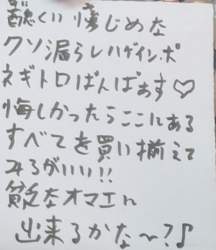 醜くい惨じめな
クソ漏らしハゲインポ
ネギトロばんばぁす♡
悔しかったらここにある
すべてを買い揃えて
みるがいい!!
貧乏なオマエに
出来るかな〜?♪